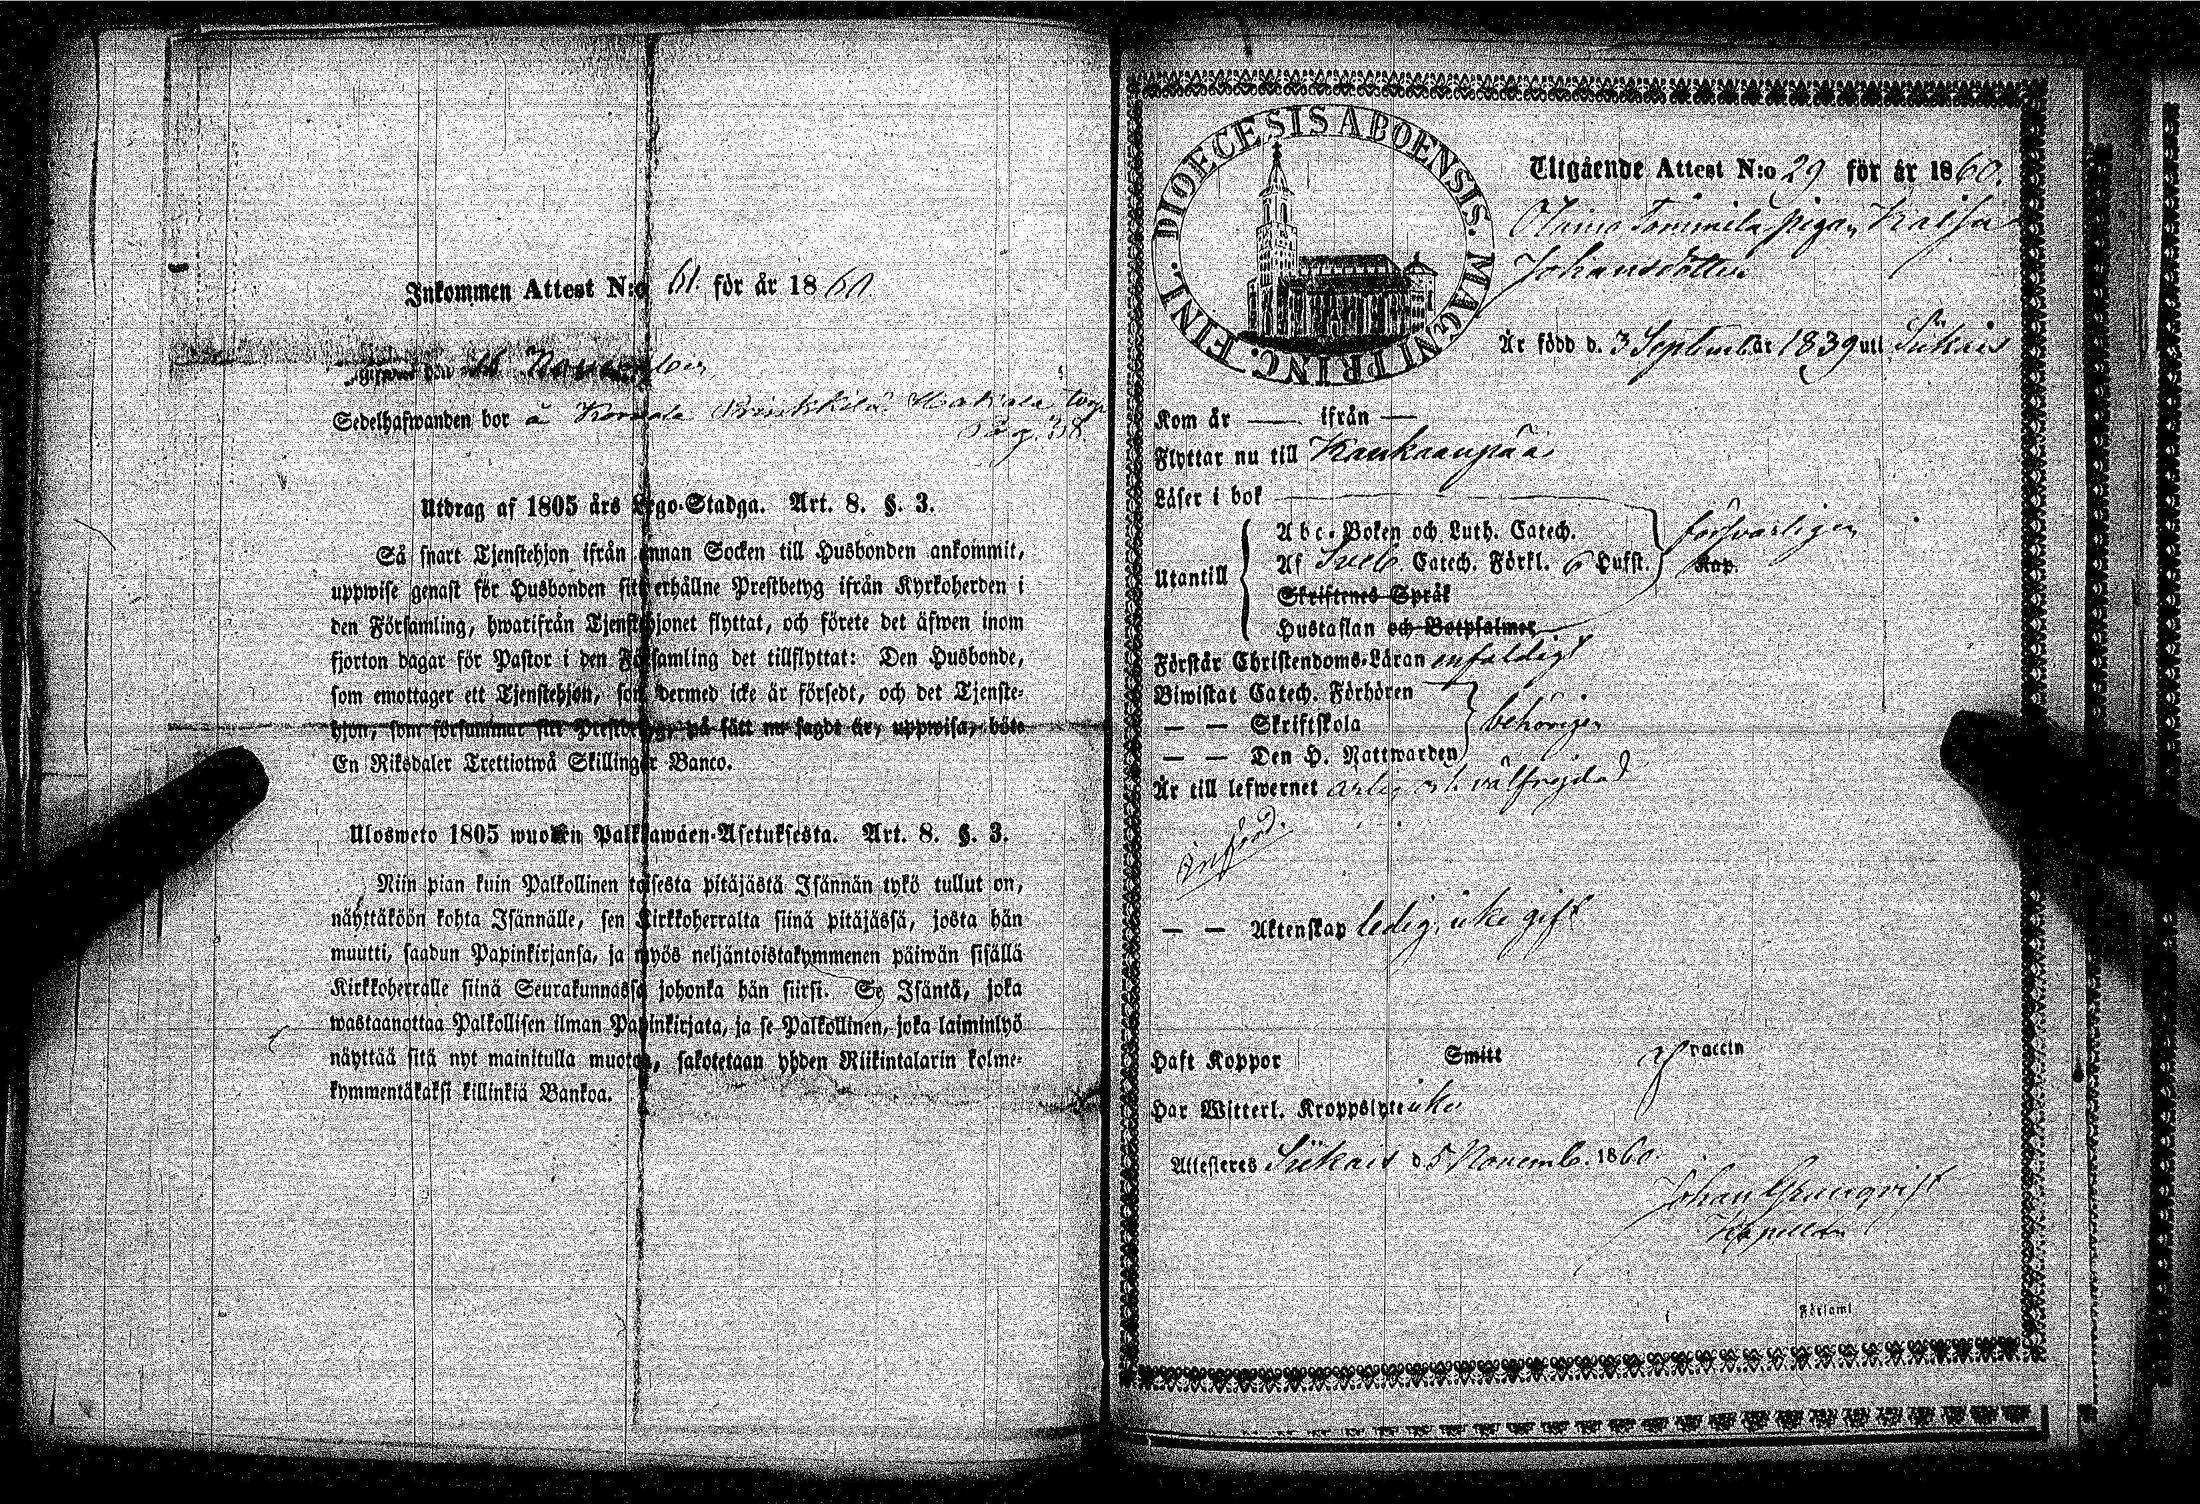 Inkommen Attest N:o 61. för år 1860.
den November
Sedelhafwanden bor å
Pag. 338
Utdrag af 1805 års Lego-Stadga. Art. 8. §. 3.
Så snart Tjenstehjon ifrån annan Socken till Husbonden ankommit,
uppwise genast för Husbonden sitt erhållne Prestbetyg ifrån Kyrkoherden i
den Församling, hwarifrån Tjenstehjonet flyttat, och förete det äfwen inom
fjorton dagar för Pastor i den Församling det tillflyttat: Den Husbonde,
som emottager ett Tjenstehjon, som dermed icke är försedt, och det Tjenste-
hjon, som försummar sitt Prestbetyg, på sätt nu sagdt är, uppwisa, böte
En Riksdaler Trettiotwå Skillingar Banco.
Ulosweto 1805 wuoden Palkkawäen-Asetuksesta. Art. 8. §. 3.
Niin pian kuin Palkollinen toisesta pitäjästä Isännän tykö tullut on,
näyttäköön kohta Isännälle, sen Kirkkoherralta siinä pitäjässä, josta hän
muutti, saadun Papinkirjansa, ja myös neljäntoistakymmenen päiwän sisällä
Kirkkoherralle siinä Seurakunnassa johonka hän siirsi. Se Isäntä, joka
wastaanottaa Palkollisen ilman Papinkirjata, ja se Palkollinen, joka laiminlyö
näyttää sitä nyt mainitulla muotoa, sakotetaan yhden Riikintalarin kolme-
kymmentäkaksi killinkiä Bankoa.
DIOECESIS ABOENSIS. MAGNI PRINC. FINL.
Utgående Attest N:o 29 för år 1860.
Tommila pigan Kaisa
Johansdotter
Är född d. 3 September 1839 uti Siikais
Kom år — ifrån —
Flyttar nu till Kankaanpää
Läser i bok
Utantill
Abc-Boken och Luth. Catech.
Af Sveb. Catech. Förkl. 6 Hufst. Kap.
försvarligen
Skriftenes Språk
Hustaflan och Botpsalmer
Förstår Christendoms-Läran enfaldigt
Biwistat Catech. Förhören
— — Skriftskola behörigen
— — Den H. Nattwarden
Är till lefwernet ärlig och välfrejdad
införd.
— — Äktenskap ledig, icke gift
Haft Koppor Smitt vaccin
Har Witterl. Kroppslyte icke
Attesteres Siikais d. 5 Novemb. 1860.
Johan Grunqvist
Kapellan
Församl